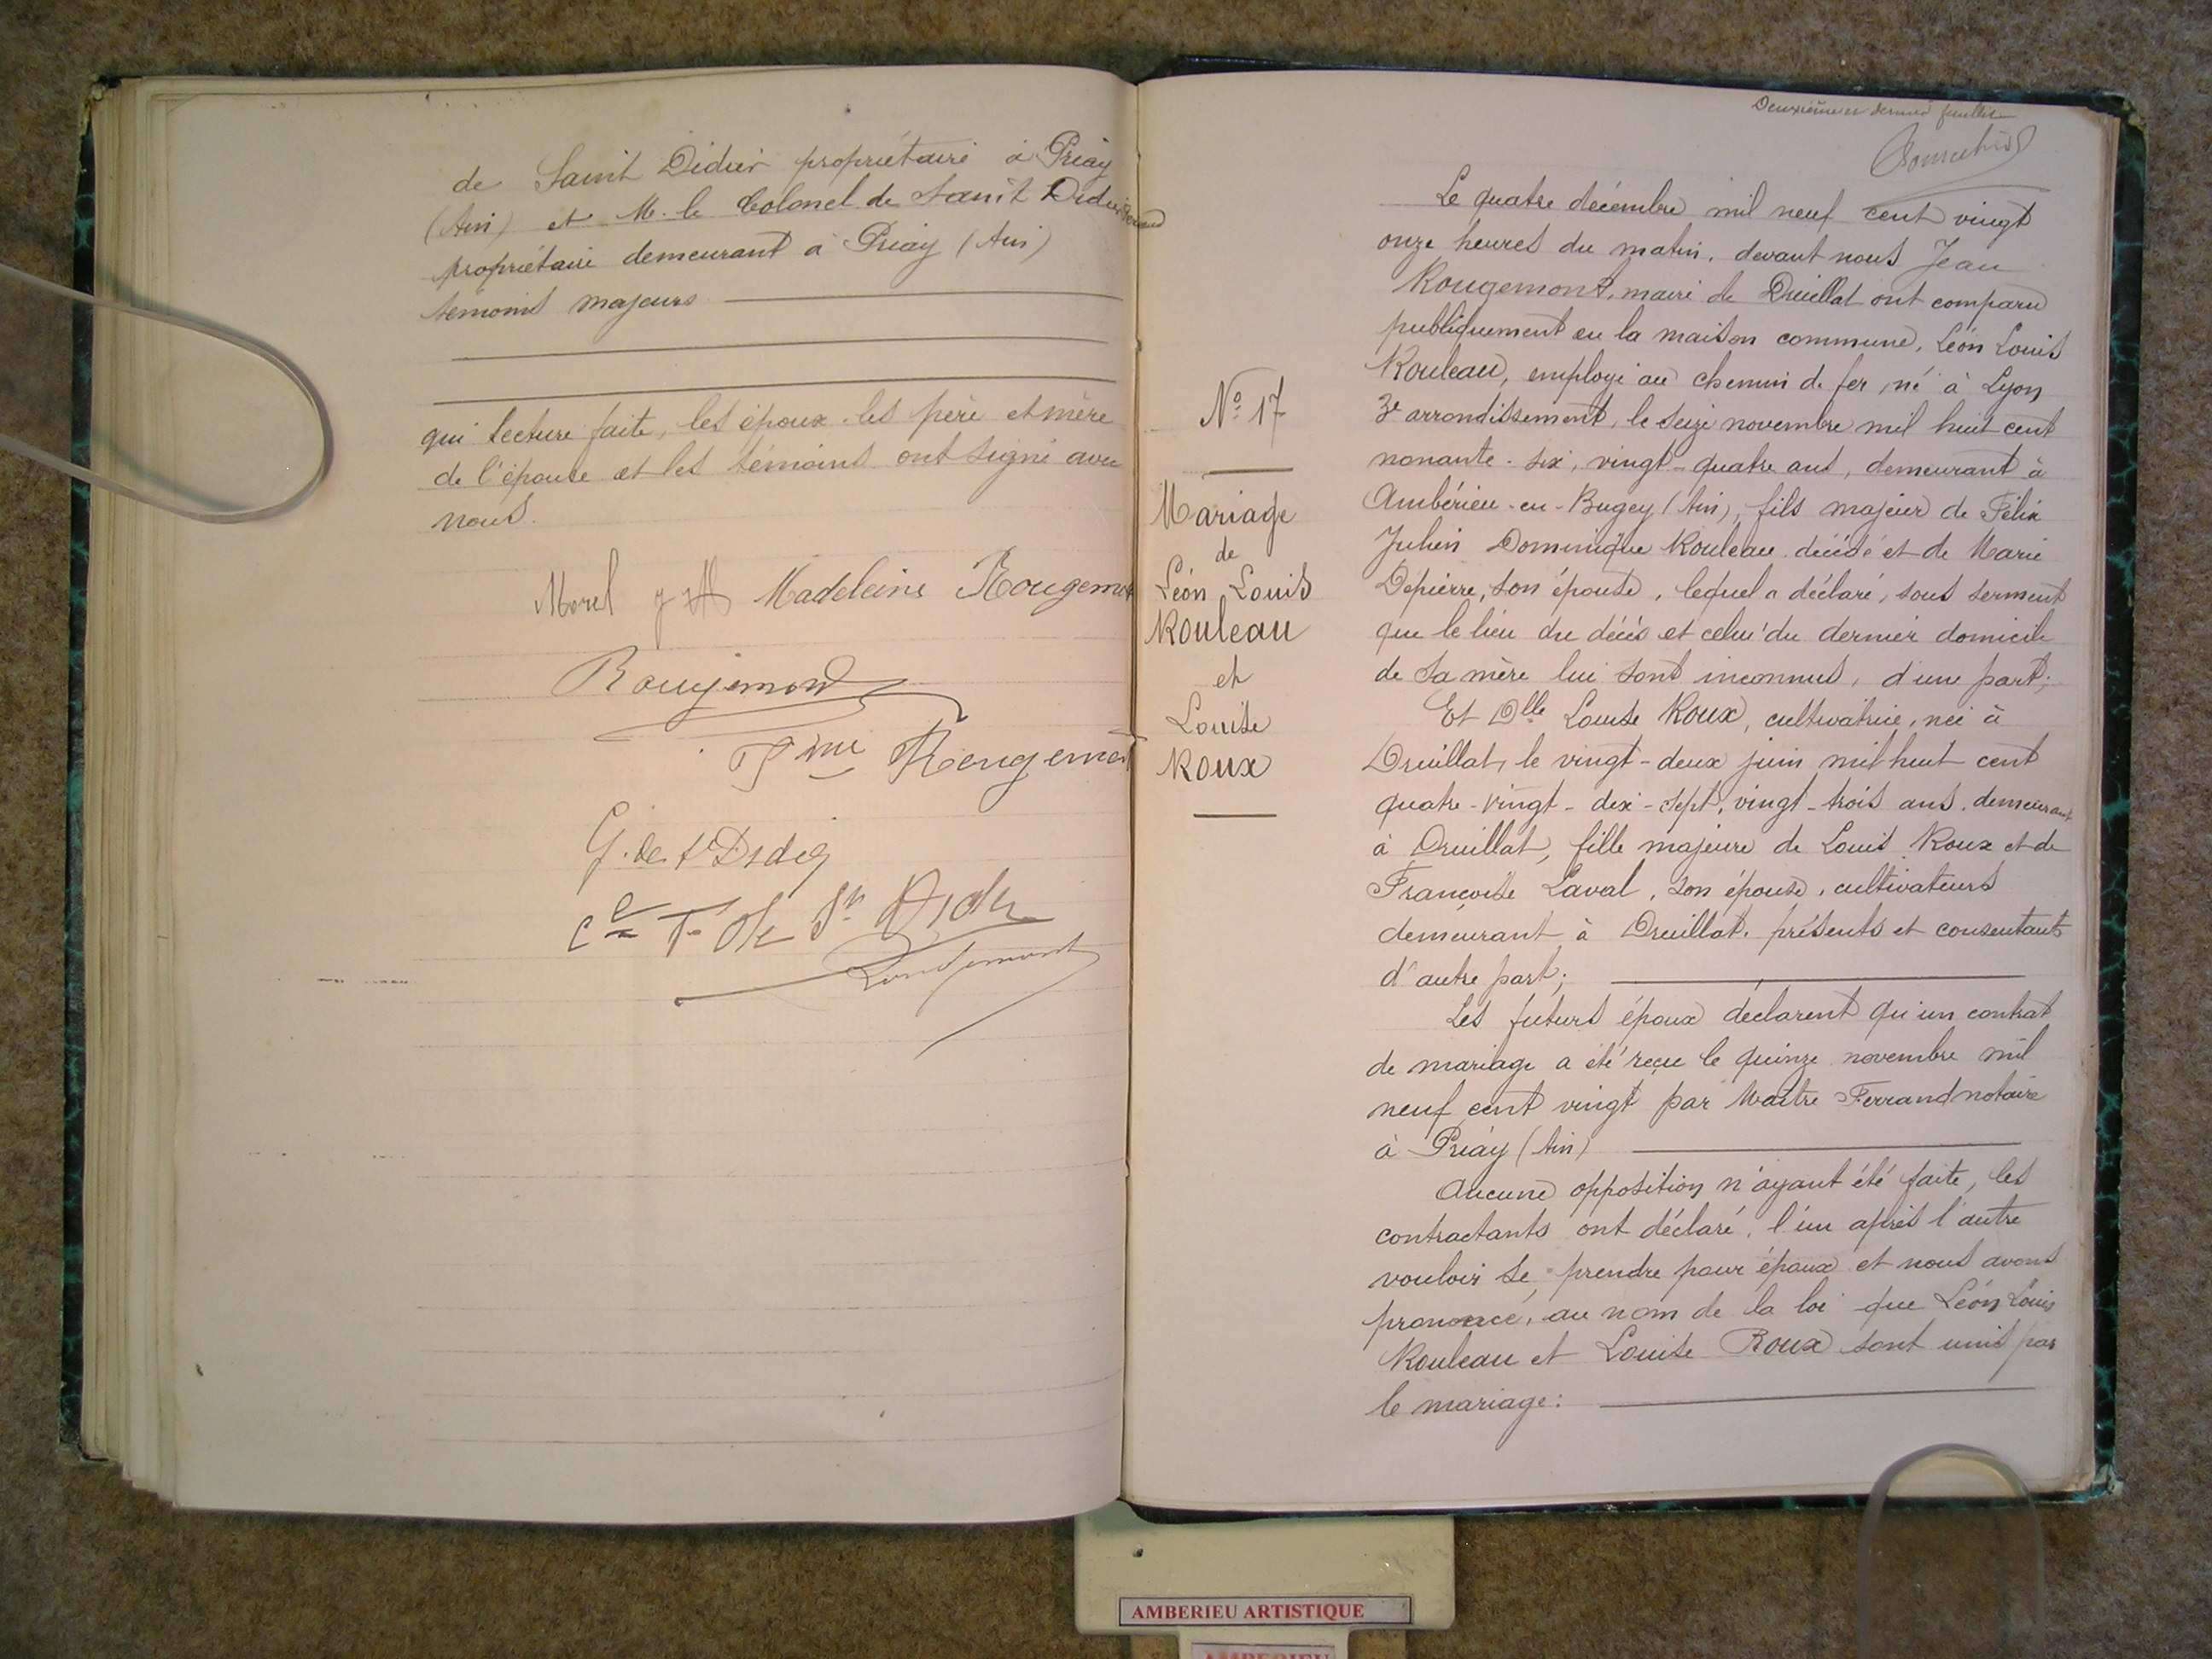 de Saint Didier propriétaire à Priay
(Ain) et M. le Colonel de Saint Didier
propriétaire demeurant à Priay (Ain)
témoins majeurs
qui lecture faite, les époux les père et mère
de l'épouse et les témoins ont signé avec
nous.
Morel Madeleine Rougemont
Rougemont
Rougemont
G. de St Didier
de St Didier
Rougemont
Deuxième et dernier feuillet
Le quatre décembre mil neuf cent vingt
onze heures du matin, devant nous Jean
Rougemont, maire de Druillat ont comparu
publiquement en la maison commune, Léon Louis
Rouleau, employé au chemin de fer, né à Lyon
3e arrondissement, le seize novembre mil huit cent
nonante-six, vingt-quatre ans, demeurant à
Ambérieu-en-Bugey (Ain), fils majeur de Félix
Julien Dominique Rouleau décédé et de Marie
Depierre, son épouse, lequel a déclaré, sous serment
que le lieu du décès et celui du dernier domicile
de sa mère lui sont inconnus, d'une part;
Et Dlle Louise Roux, cultivatrice, née à
Druillat, le vingt-deux juin mil huit cent
quatre-vingt-dix-sept, vingt-trois ans, demeurant
à Druillat, fille majeure de Louis Roux et de
Françoise Laval, son épouse, cultivateurs
demeurant à Druillat, présents et consentants
d'autre part;
Les futurs époux déclarent qu'un contrat
de mariage a été reçu le quinze novembre mil
neuf cent vingt par Maître Ferrand notaire
à Priay (Ain)
Aucune opposition n'ayant été faite, les
contractants ont déclaré, l'un après l'autre
vouloir se prendre pour époux et nous avons
prononcé, au nom de la loi que Léon Louis
Rouleau et Louise Roux sont unis par
le mariage:
No 17
Mariage
de
Léon Louis
Rouleau
et
Louise
Roux
AMBERIEU ARTISTIQUE
AMBERIEU